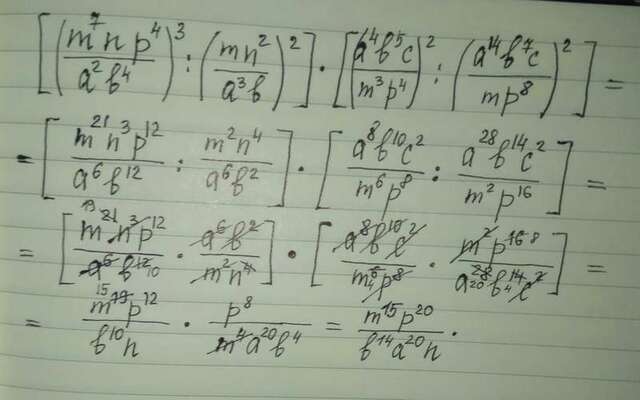 [((m⁷np⁴)/(a²b⁴))³ : ((mn²)/(a³b))²] · [((a⁴b⁵c)/(m³p⁴))² : ((a¹⁴b⁷c)/(mp⁸))²] =
= [(m²¹n³p¹²)/(a⁶b¹²) : (m²n⁴)/(a⁶b²)] · [(a⁸b¹⁰c²)/(m⁶p⁸) : (a²⁸b¹⁴c²)/(m²p¹⁶)] =
= [(m²¹ ¹⁹n³p¹²)/(a⁶b¹² ¹⁰) · (a⁶b²)/(m²n⁴)] · [(a⁸b¹⁰c²)/(m⁶ ₄p⁸) · (m²p¹⁶ ⁸)/(a²⁸ ₂₀b¹⁴ ₄c²)] =
= (m¹⁹ ¹⁵p¹²)/(b¹⁰n) · (p⁸)/(m⁴a²⁰b⁴) = (m¹⁵p²⁰)/(b¹⁴a²⁰n).